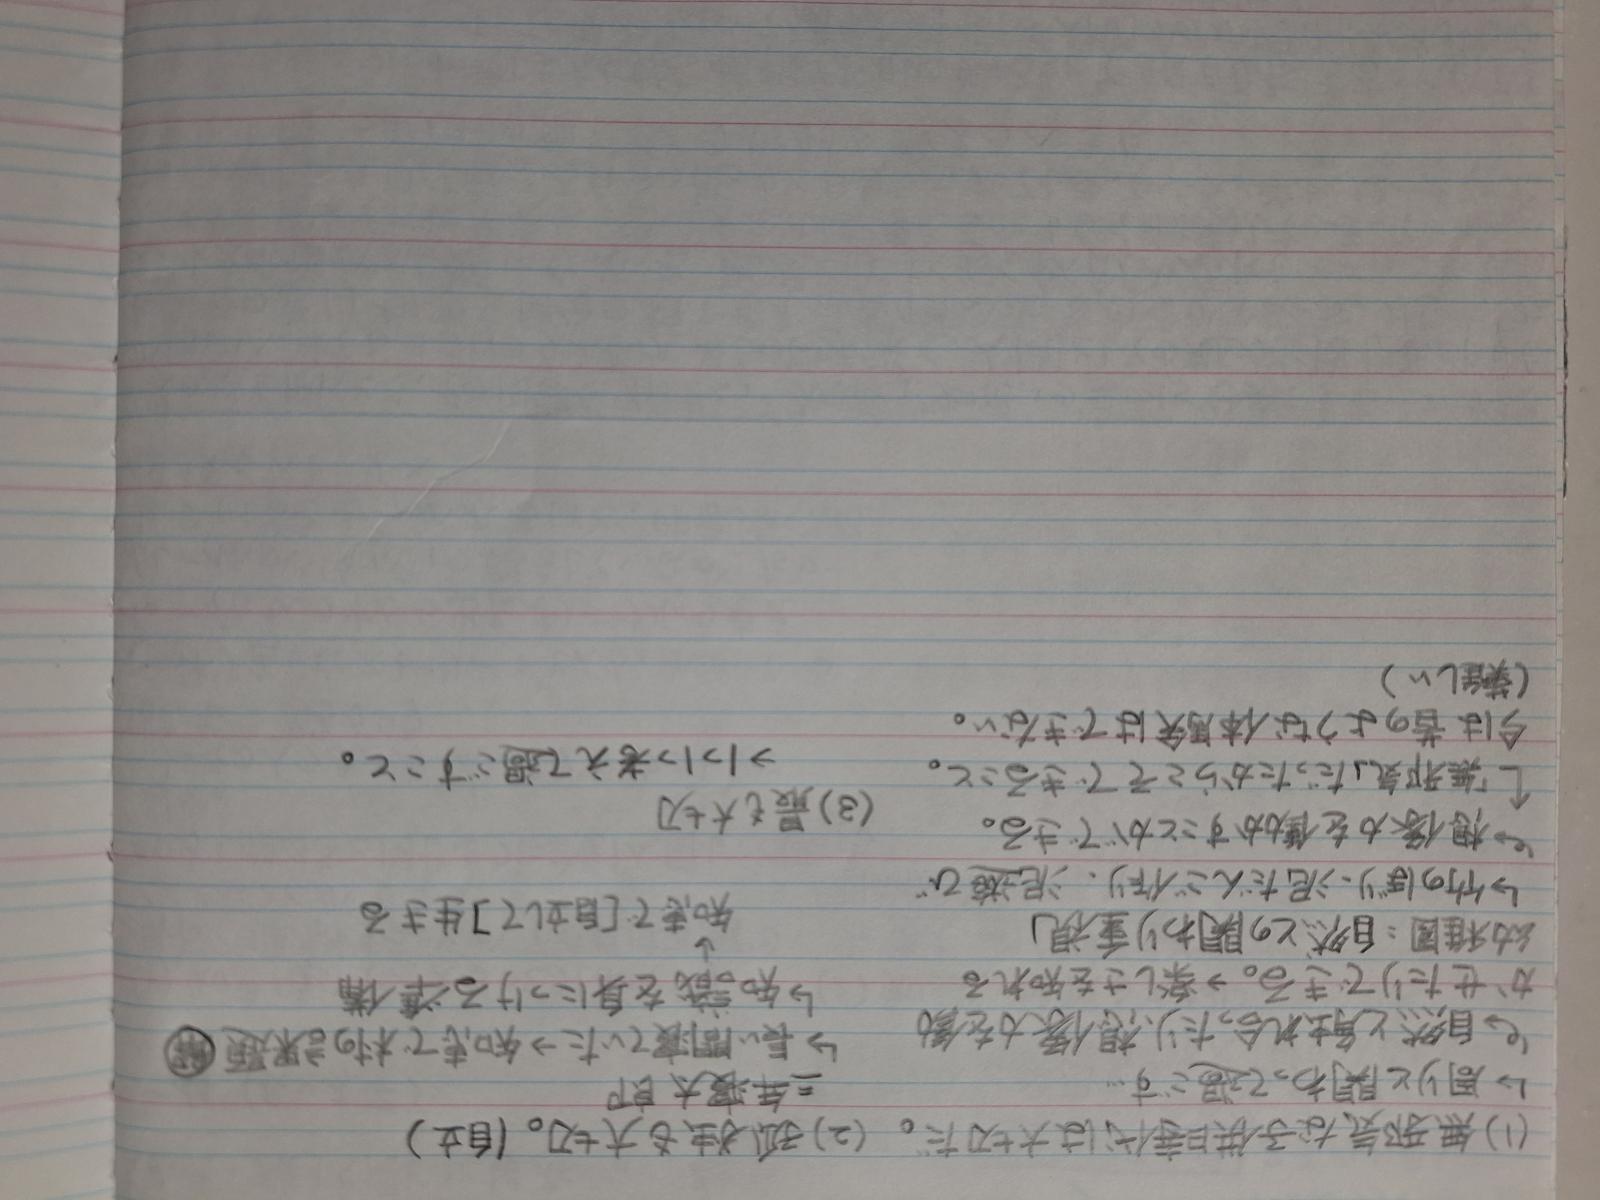 (1) 無邪気な子供時代は大切だ。
↳ 周りと関わって過ごす…
↳ 自然と触れ合ったり、想像力を働
かせたりできる。→ 楽しさを知れる
幼稚園:自然との関わり重視」
↳ 竹のぼり・泥だんご作り・泥遊び
↳ 想像力を働かすことができる。
↑「無邪気」だったからこそできること。
今は昔のような体験はできない。
(難しい)
(2) 孤独も大切。(自立)
三年寝太郎
↳ 長い間寝ていた → 知恵で村の課題 解
↳ 知識を身につける準備
↓
知恵で[自立して]生きる
(3) 最も大切
→ 1つ1つ考えて過ごすこと。